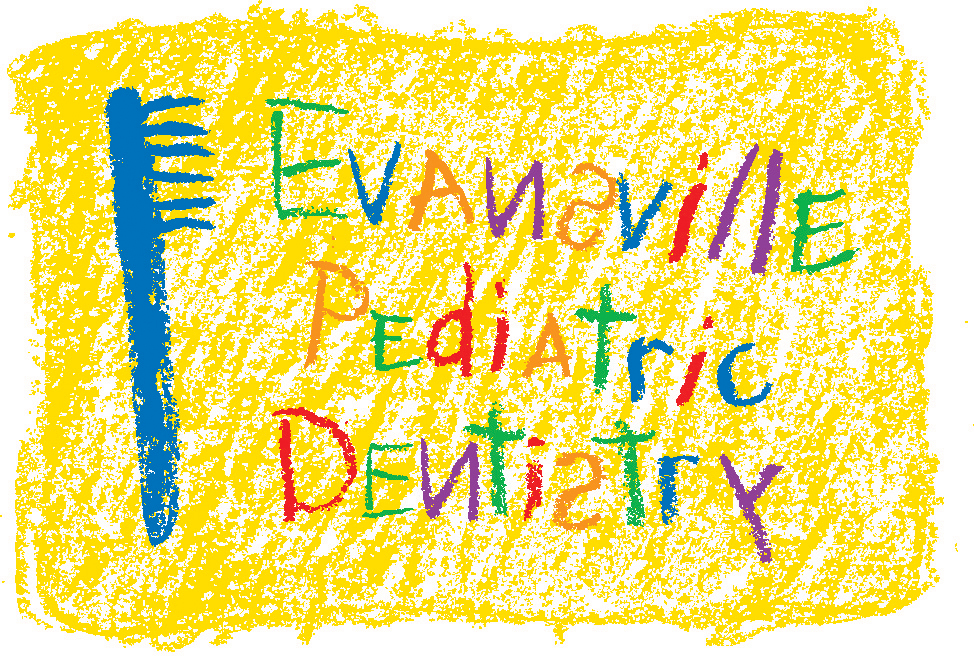 Evansville
Pediatric
Dentistry